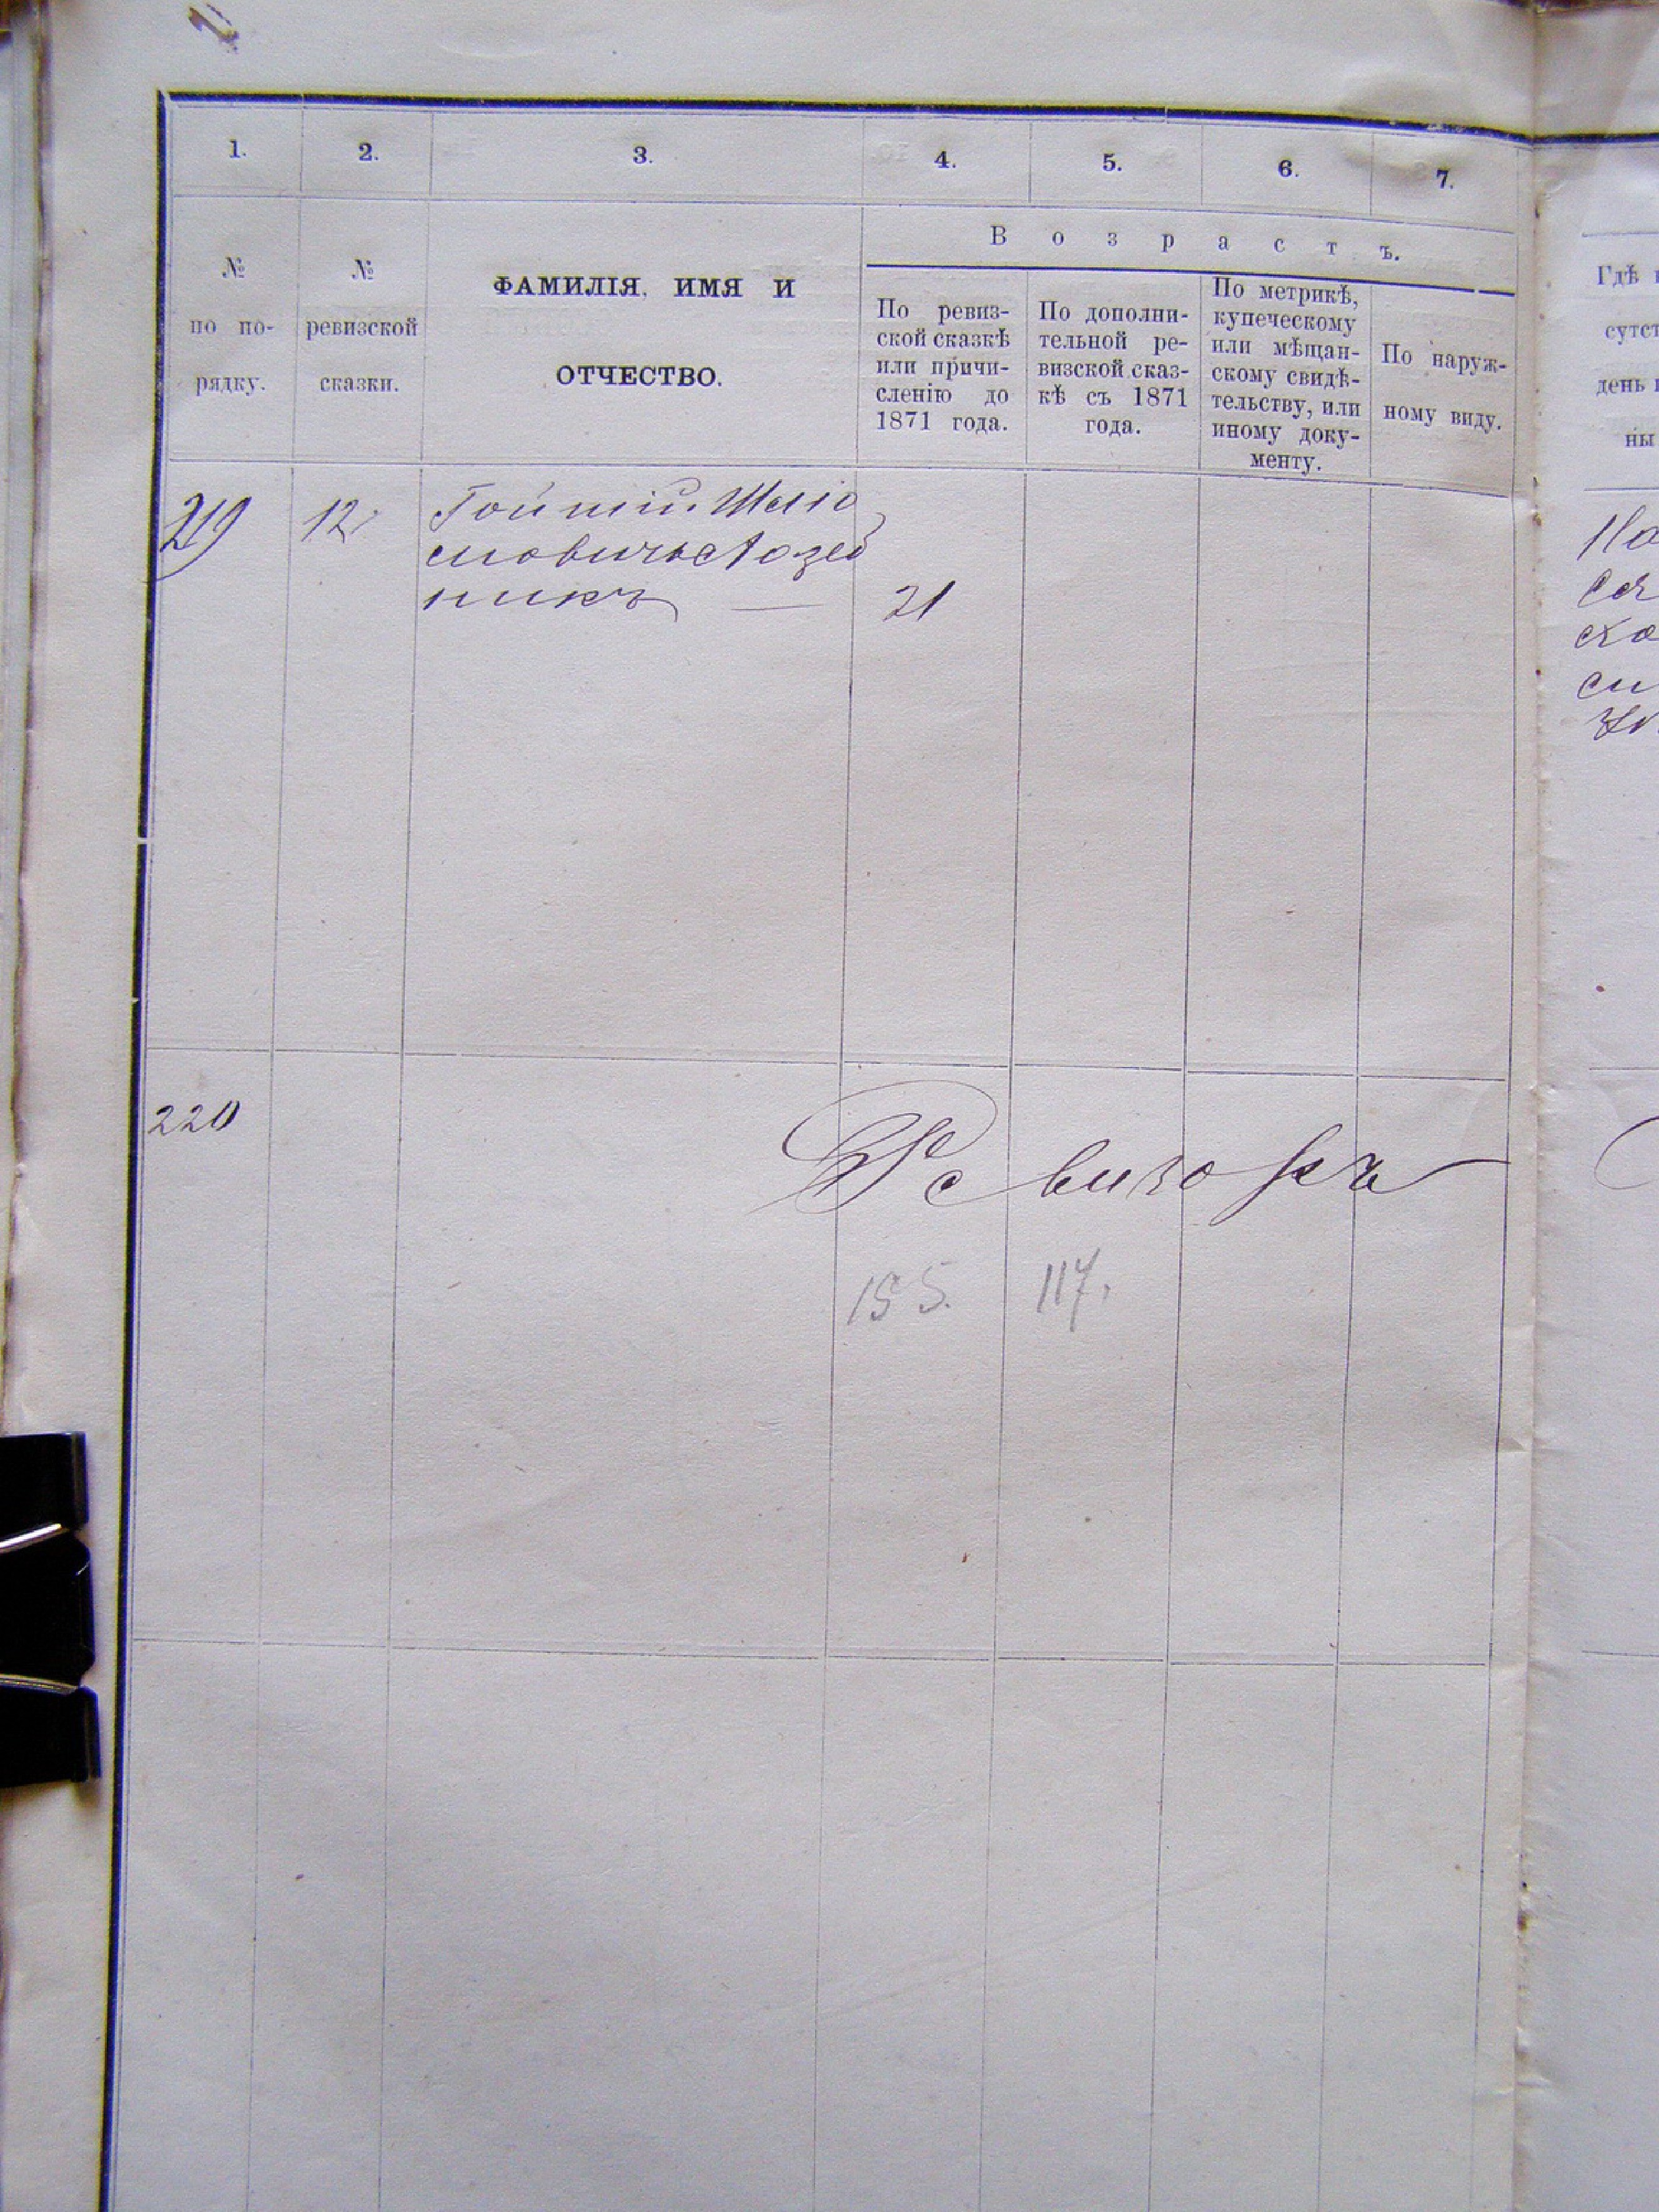 1. 2. 3. 4. 5. 6. 7.
№
по по-
рядку.
№
ревизской
сказки.
ФАМИЛІЯ, ИМЯ И
ОТЧЕСТВО.
Возрастъ.
По ревиз-
ской сказкѣ
или причи-
сленію до
1871 года.
По дополни-
тельной ре-
визской сказ-
кѣ съ 1871
года.
По метрикѣ,
купеческому
или мѣщан-
скому свидѣ-
тельству, или
иному доку-
менту.
По наруж-
ному виду.
Гдѣ
сутст
день
ны
219 12
никъ — 21
220
Ревизоръ
155. 117.